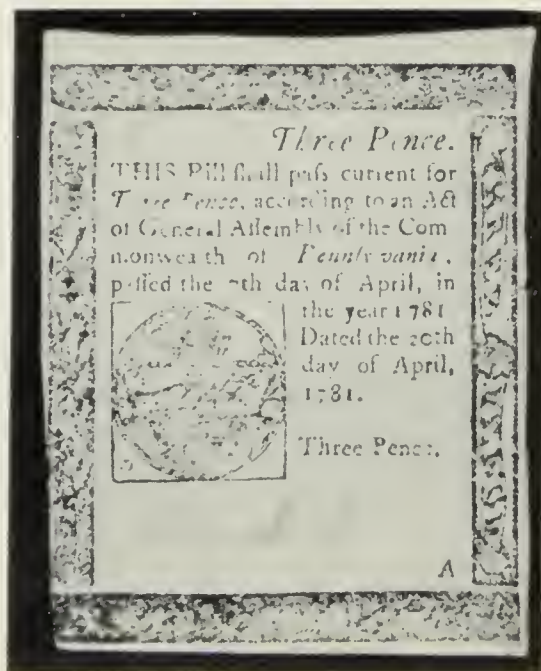 Three Pence.
THIS Bill ſhall paſs current for
Three Pence, according to an Act
of General Aſſembly of the Com
monwealth of Pennſylvania,
paſſed the 7th day of April, in
the year 1781
Dated the 20th
day of April,
1781.
Three Pence.
A